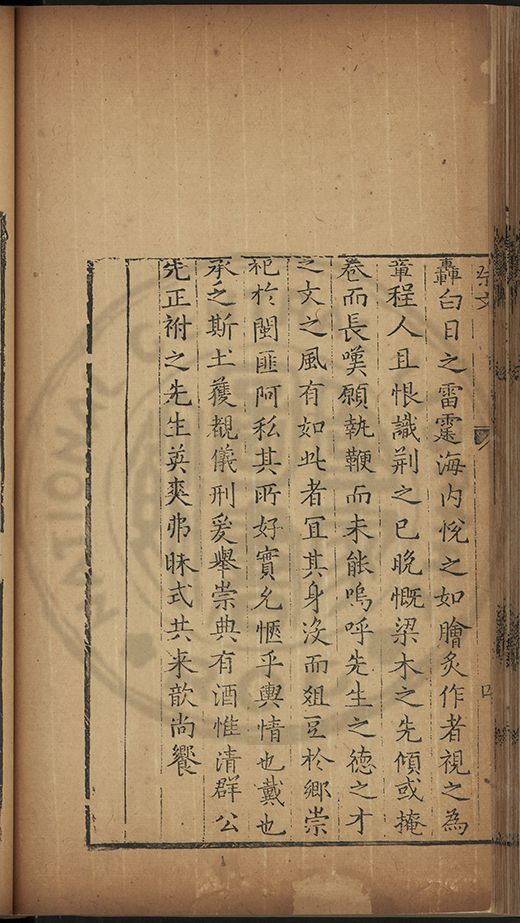 轟白日之雷霆海內悅之如膾炙作者視之為
章程人且恨識荆之已晩慨梁木之先傾或掩
卷而長嘆願執鞭而未能嗚呼先生之德之才
之文之風有如此者宜其身沒而俎豆於鄉崇
祀於閩匪阿私其所好實允愜乎輿情也戴也
承乏斯土獲覩儀刑爰舉崇典有酒惟清群公
先正祔之先生英爽弗昧式共来歆尚饗